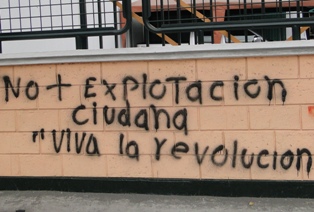 No + ExplOTacion
ciudana
"Viva la revolucion